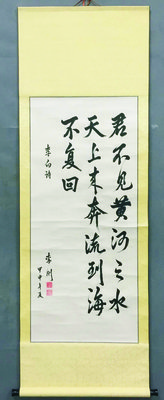 君不见黄河之水
天上来奔流到海
不复回
李白诗
甲申年夏